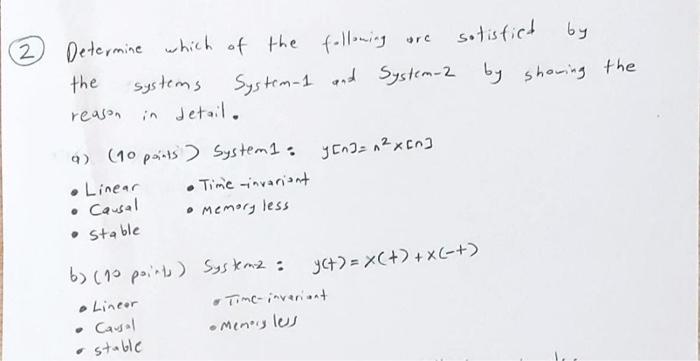 2 Determine which of the following are satisfied by
the systems System-1 and System-2 by showing the
reason in detail.
a) (10 points) System1: y[n]= n² x[n]
• Linear • Time-invariant
• Causal • Memoryless
• Stable
b) (10 points) System2: y(t) = x(t) + x(-t)
• Linear • Time-invariant
• Causal • Memoryless
• Stable